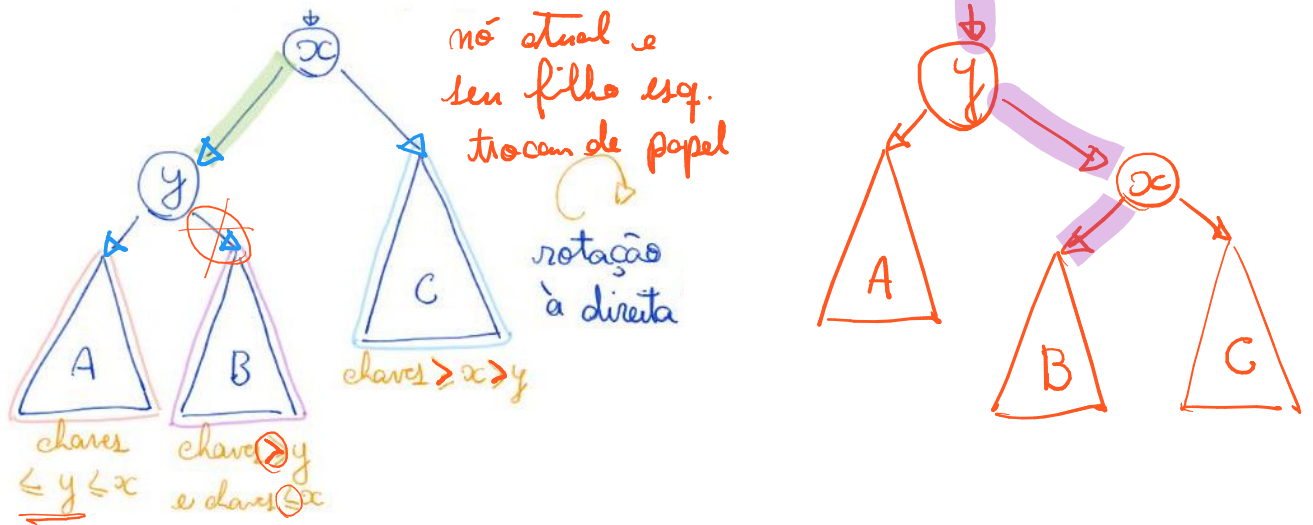 x
nó atual e
seu filho esq.
trocam de papel
y
rotação
à direita
A
B
C
chaves ⩾ x ⩾ y
chaves
≤ y ≤ x
chaves ⩾ y
e chaves ≤ x
y
x
A
B
C